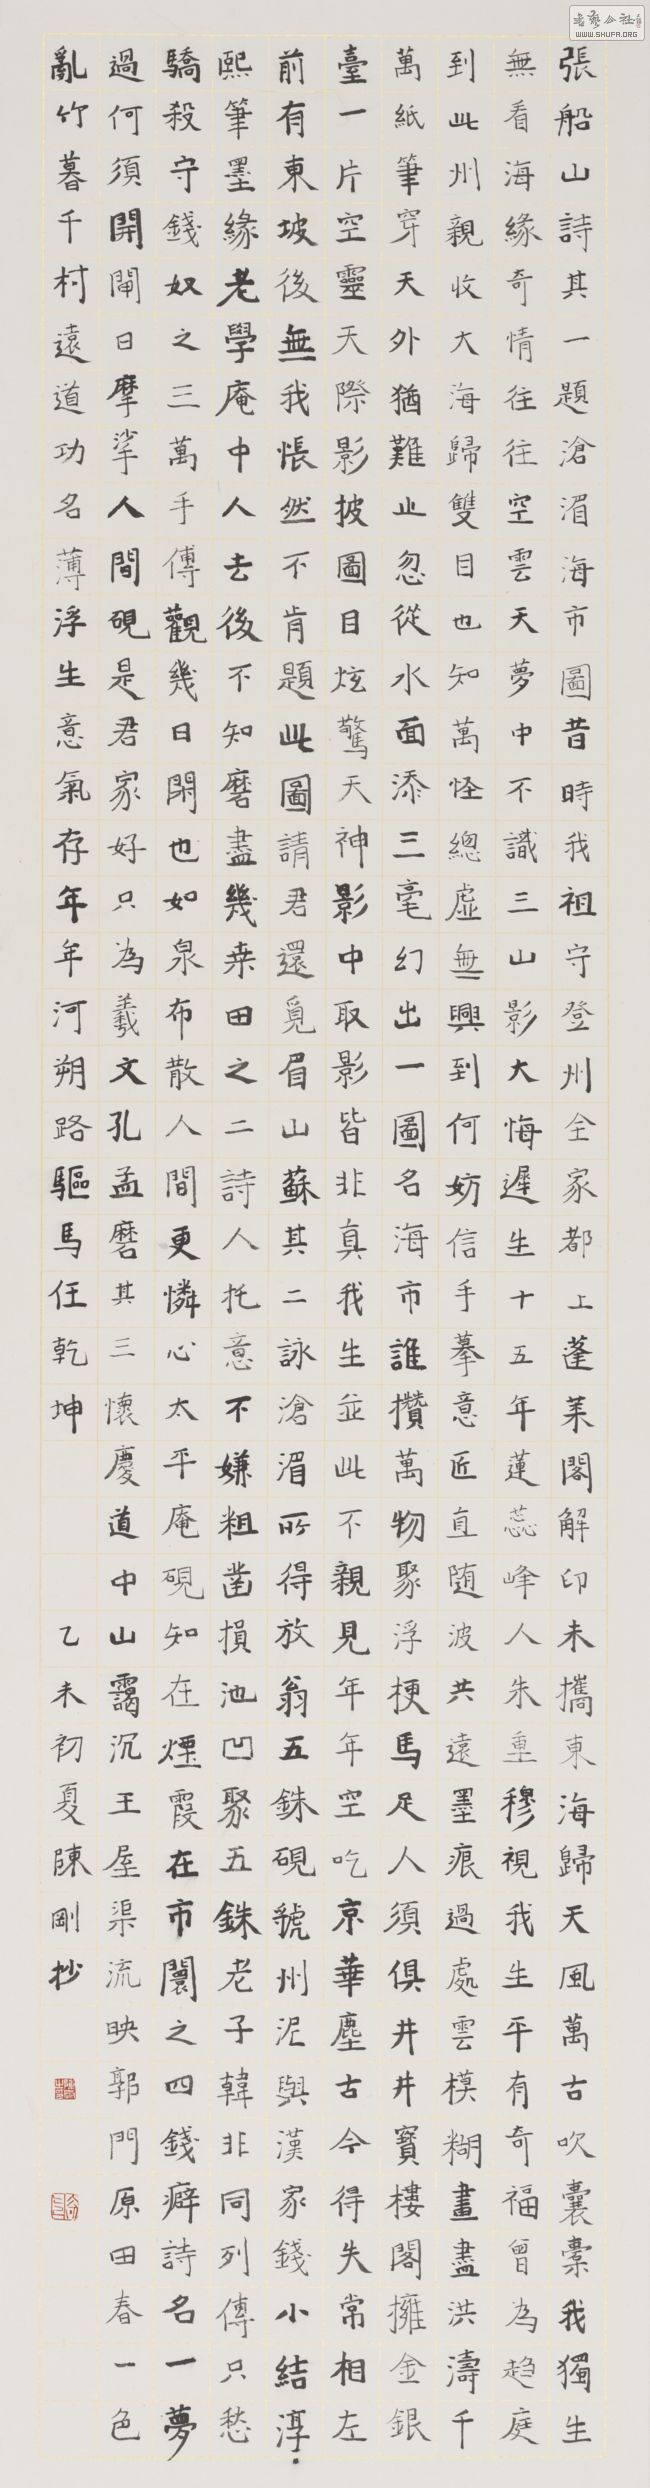 張船山詩其一題滄湄海市圖昔時我祖守登州全家都上蓬萊閣解印未攜東海歸天風萬古吹囊橐我獨生
無看海緣奇情往往空雲天夢中不識三山影大悔遲生十五年蓮蕊峰人朱重穆視我生平有奇福曾為趨庭
到此州親收大海歸雙目也知萬怪總虛無興到何妨信手摹意匠直随波共遠墨痕過處雲模糊畫盡洪濤千
萬紙筆穿天外猶難止忽從水面添三毫幻出一圖名海市誰攢萬物聚浮梗馬足人須俱井井寶樓閣擁金銀
臺一片空靈天際影披圖目炫驚天神影中取影皆非真我生並此不親見年年空吃京華塵古今得失常相左
前有東坡後無我悵然不肯題此圖請君還覓眉山蘇其二詠滄湄所得放翁五銖硯虢州泥與漢家錢小結淳
熙筆墨緣老學庵中人去後不知磨盡幾桒田之二詩人托意不嫌粗凿損池凹聚五銖老子韓非同列傳只愁
驕殺守錢奴之三萬手傳觀幾日閑也如泉布散人間更憐心太平庵硯知在煙霞在市闤之四錢癖詩名一夢
過何須開閘日摩挲人間硯是君家好只為羲文孔孟磨其三懷慶道中山靄沉王屋渠流映郭門原田春一色
亂竹暮千村遠道功名薄浮生意氣存年年河朔路驅馬任乾坤
乙未初夏陳剛抄
WWW.SHUFA.ORG